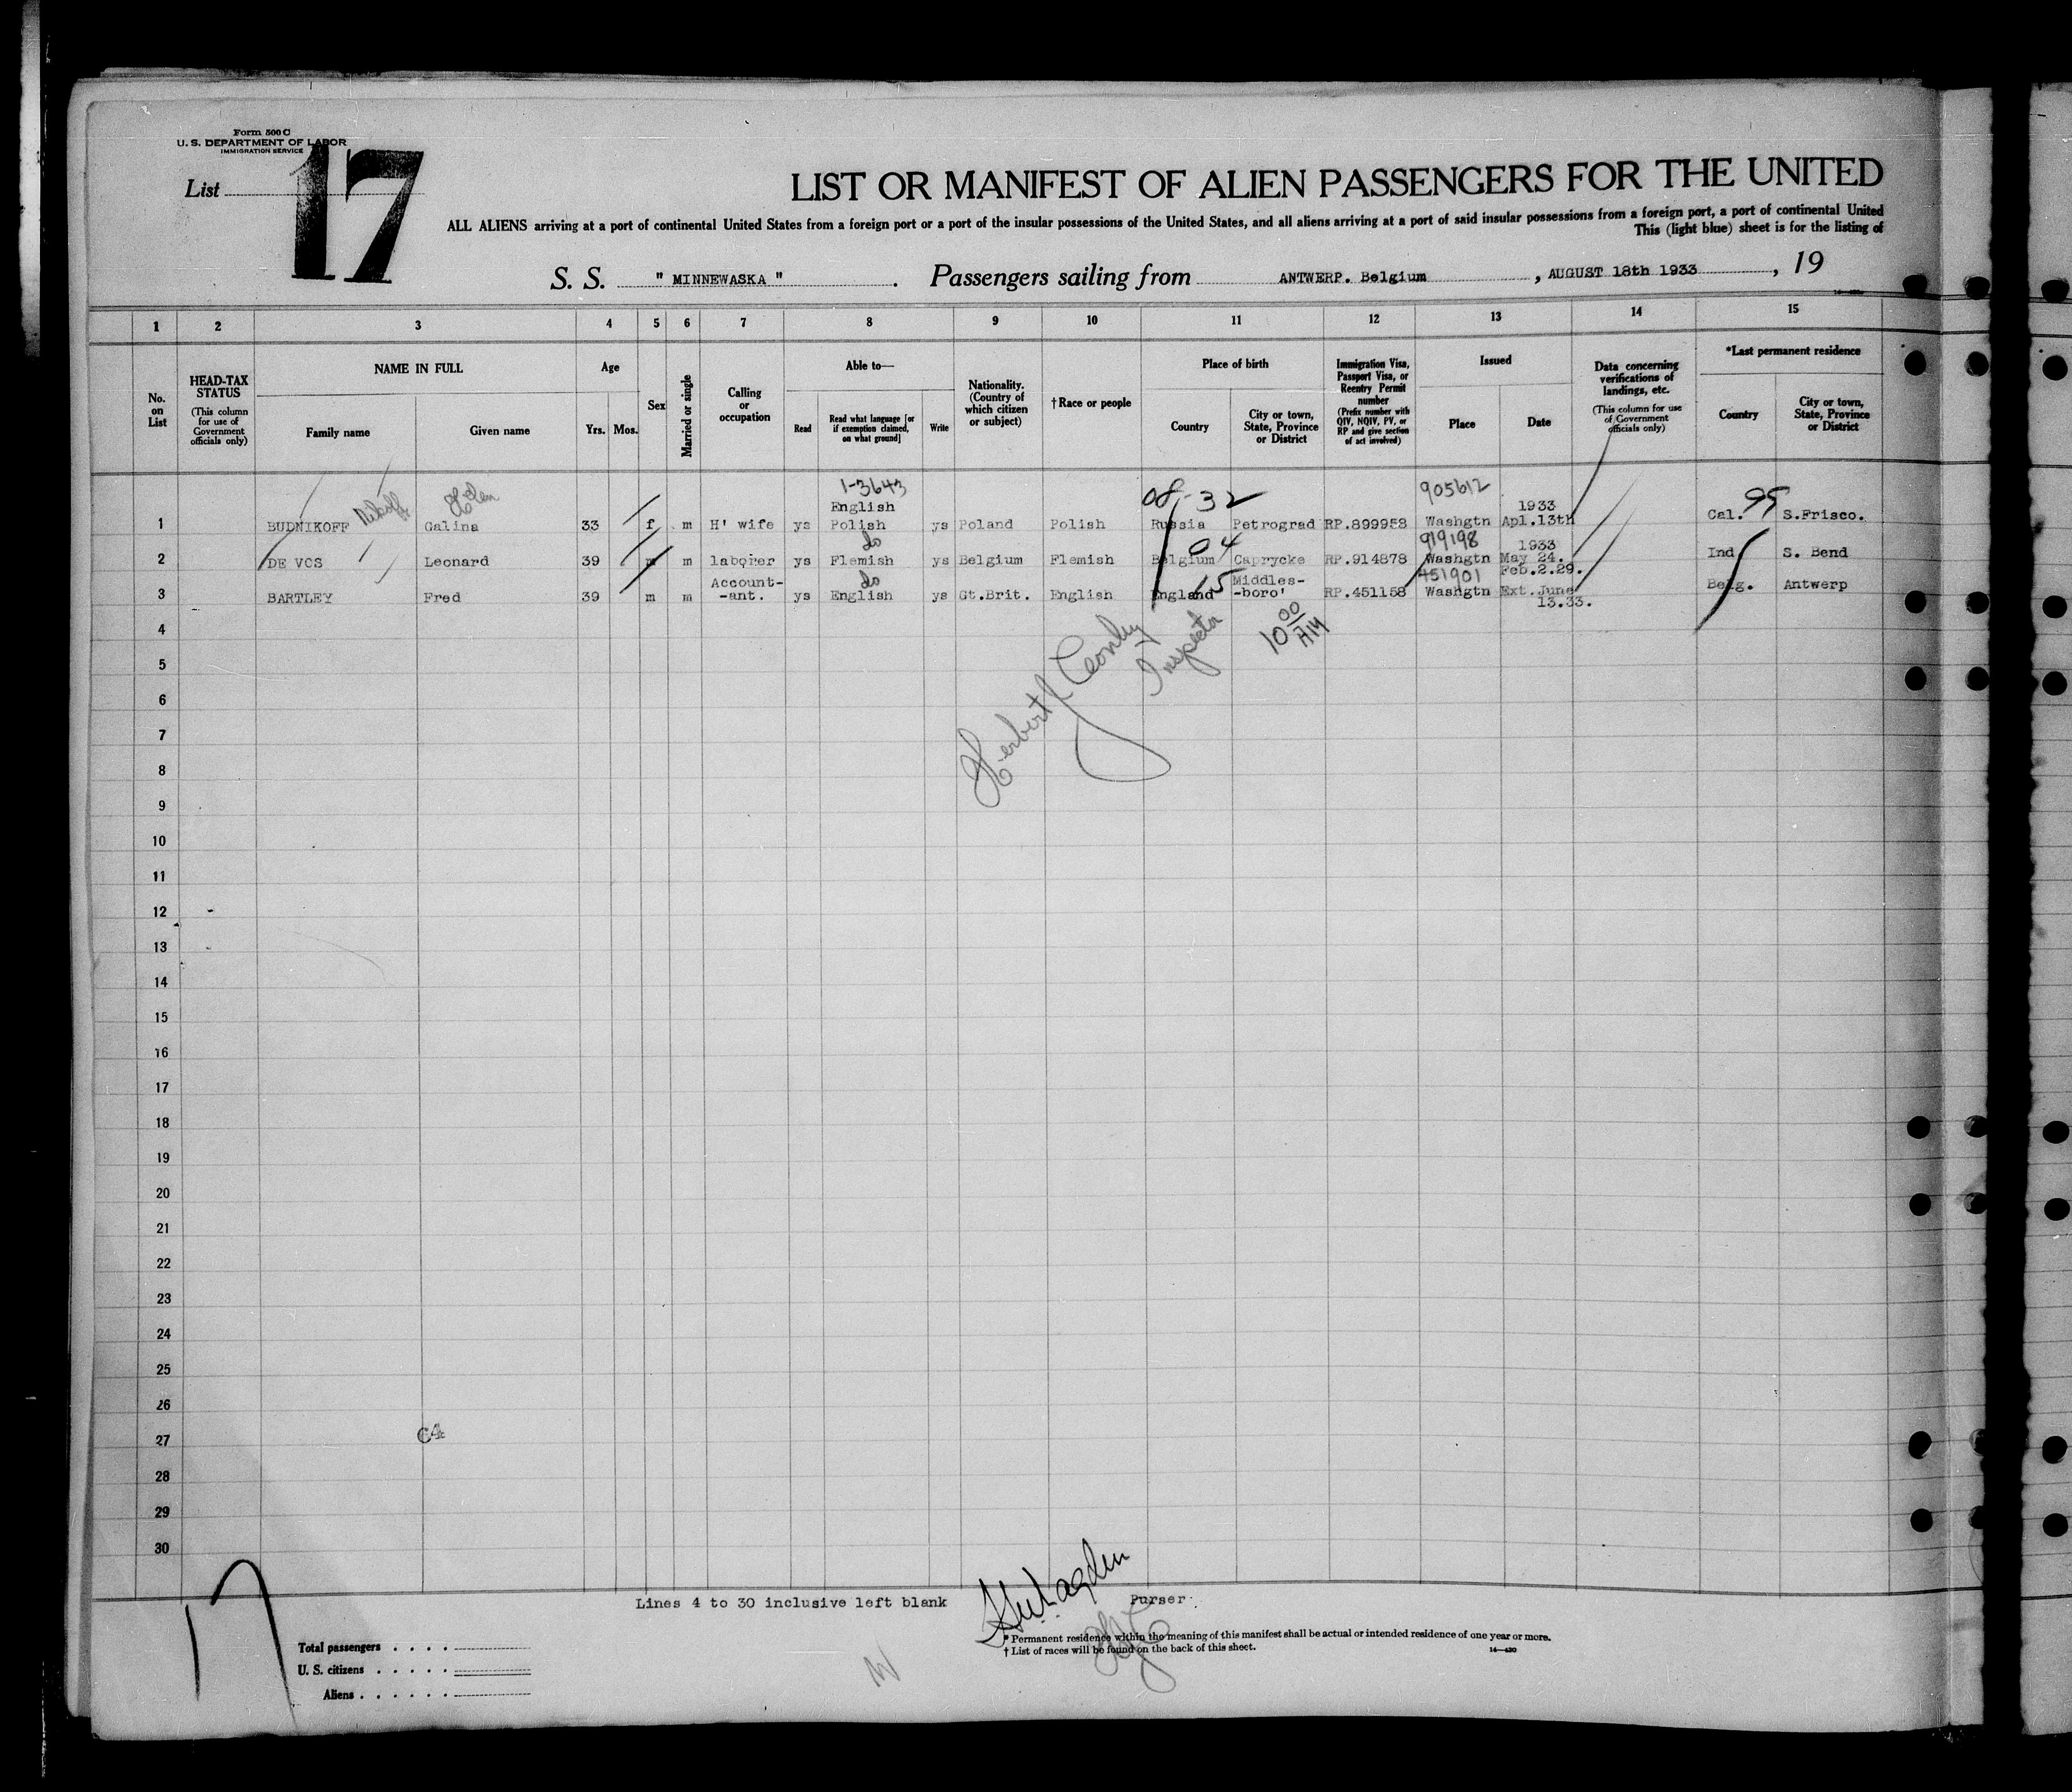 Form 500 C
U. S. DEPARTMENT OF LABOR
IMMIGRATION SERVICE
List 17
LIST OR MANIFEST OF ALIEN PASSENGERS FOR THE UNITED
ALL ALIENS arriving at a port of continental United States from a foreign port or a port of the insular possessions of the United States, and all aliens arriving at a port of said insular possessions from a foreign port, a port of continental United
This (light blue) sheet is for the listing of
S. S. " MINNEWASKA ". Passengers sailing from ANTWERP. Belgium , AUGUST 18th 1933 , 19
1 2 3 4 5 6 7 8 9 10 11 12 13 14 15
No. on List
HEAD-TAX STATUS
(This column for use of Government officials only)
NAME IN FULL
Family name Given name
Age
Yrs. Mos.
Sex
Married or single
Calling or occupation
Able to—
Read
Read what language [or if exemption claimed, on what ground]
Write
Nationality. (Country of which citizen or subject)
†Race or people
Place of birth
Country
City or town, State, Province or District
Immigration Visa, Passport Visa, or Reentry Permit number
(Prefix number with QIV, NQIV, PV, or RP and give section of act involved)
Issued
Place Date
Data concerning verifications of landings, etc.
(This column for use of Government officials only)
*Last permanent residence
Country
City or town, State, Province or District
1-3643 08-32 905612 99
Helen English 1933
1 BUDNIKOFF Galina 33 f m H' wife ys Polish ys Poland Polish Russia Petrograd RP.899958 Washgtn Apl.13th Cal. S.Frisco.
do 04 919198 1933
2 DE VOS Leonard 39 m m laborer ys Flemish ys Belgium Flemish Belgium Caprycke RP.914878 Washgtn May 24. Ind S. Bend
Account- do 15 Middles- 451901 Feb.2.29.
3 BARTLEY Fred 39 m m -ant. ys English ys Gt.Brit. English England -boro' RP.451158 Washgtn Ext.June 13.33. Belg. Antwerp
10 00 AM
Inspector
4
5
6
7
8
9
10
11
12
13
14
15
16
17
18
19
20
21
22
23
24
25
26
27 C4
28
29
30
17
Lines 4 to 30 inclusive left blank
Purser.
Total passengers
U. S. citizens
Aliens
* Permanent residence within the meaning of this manifest shall be actual or intended residence of one year or more.
† List of races will be found on the back of this sheet.